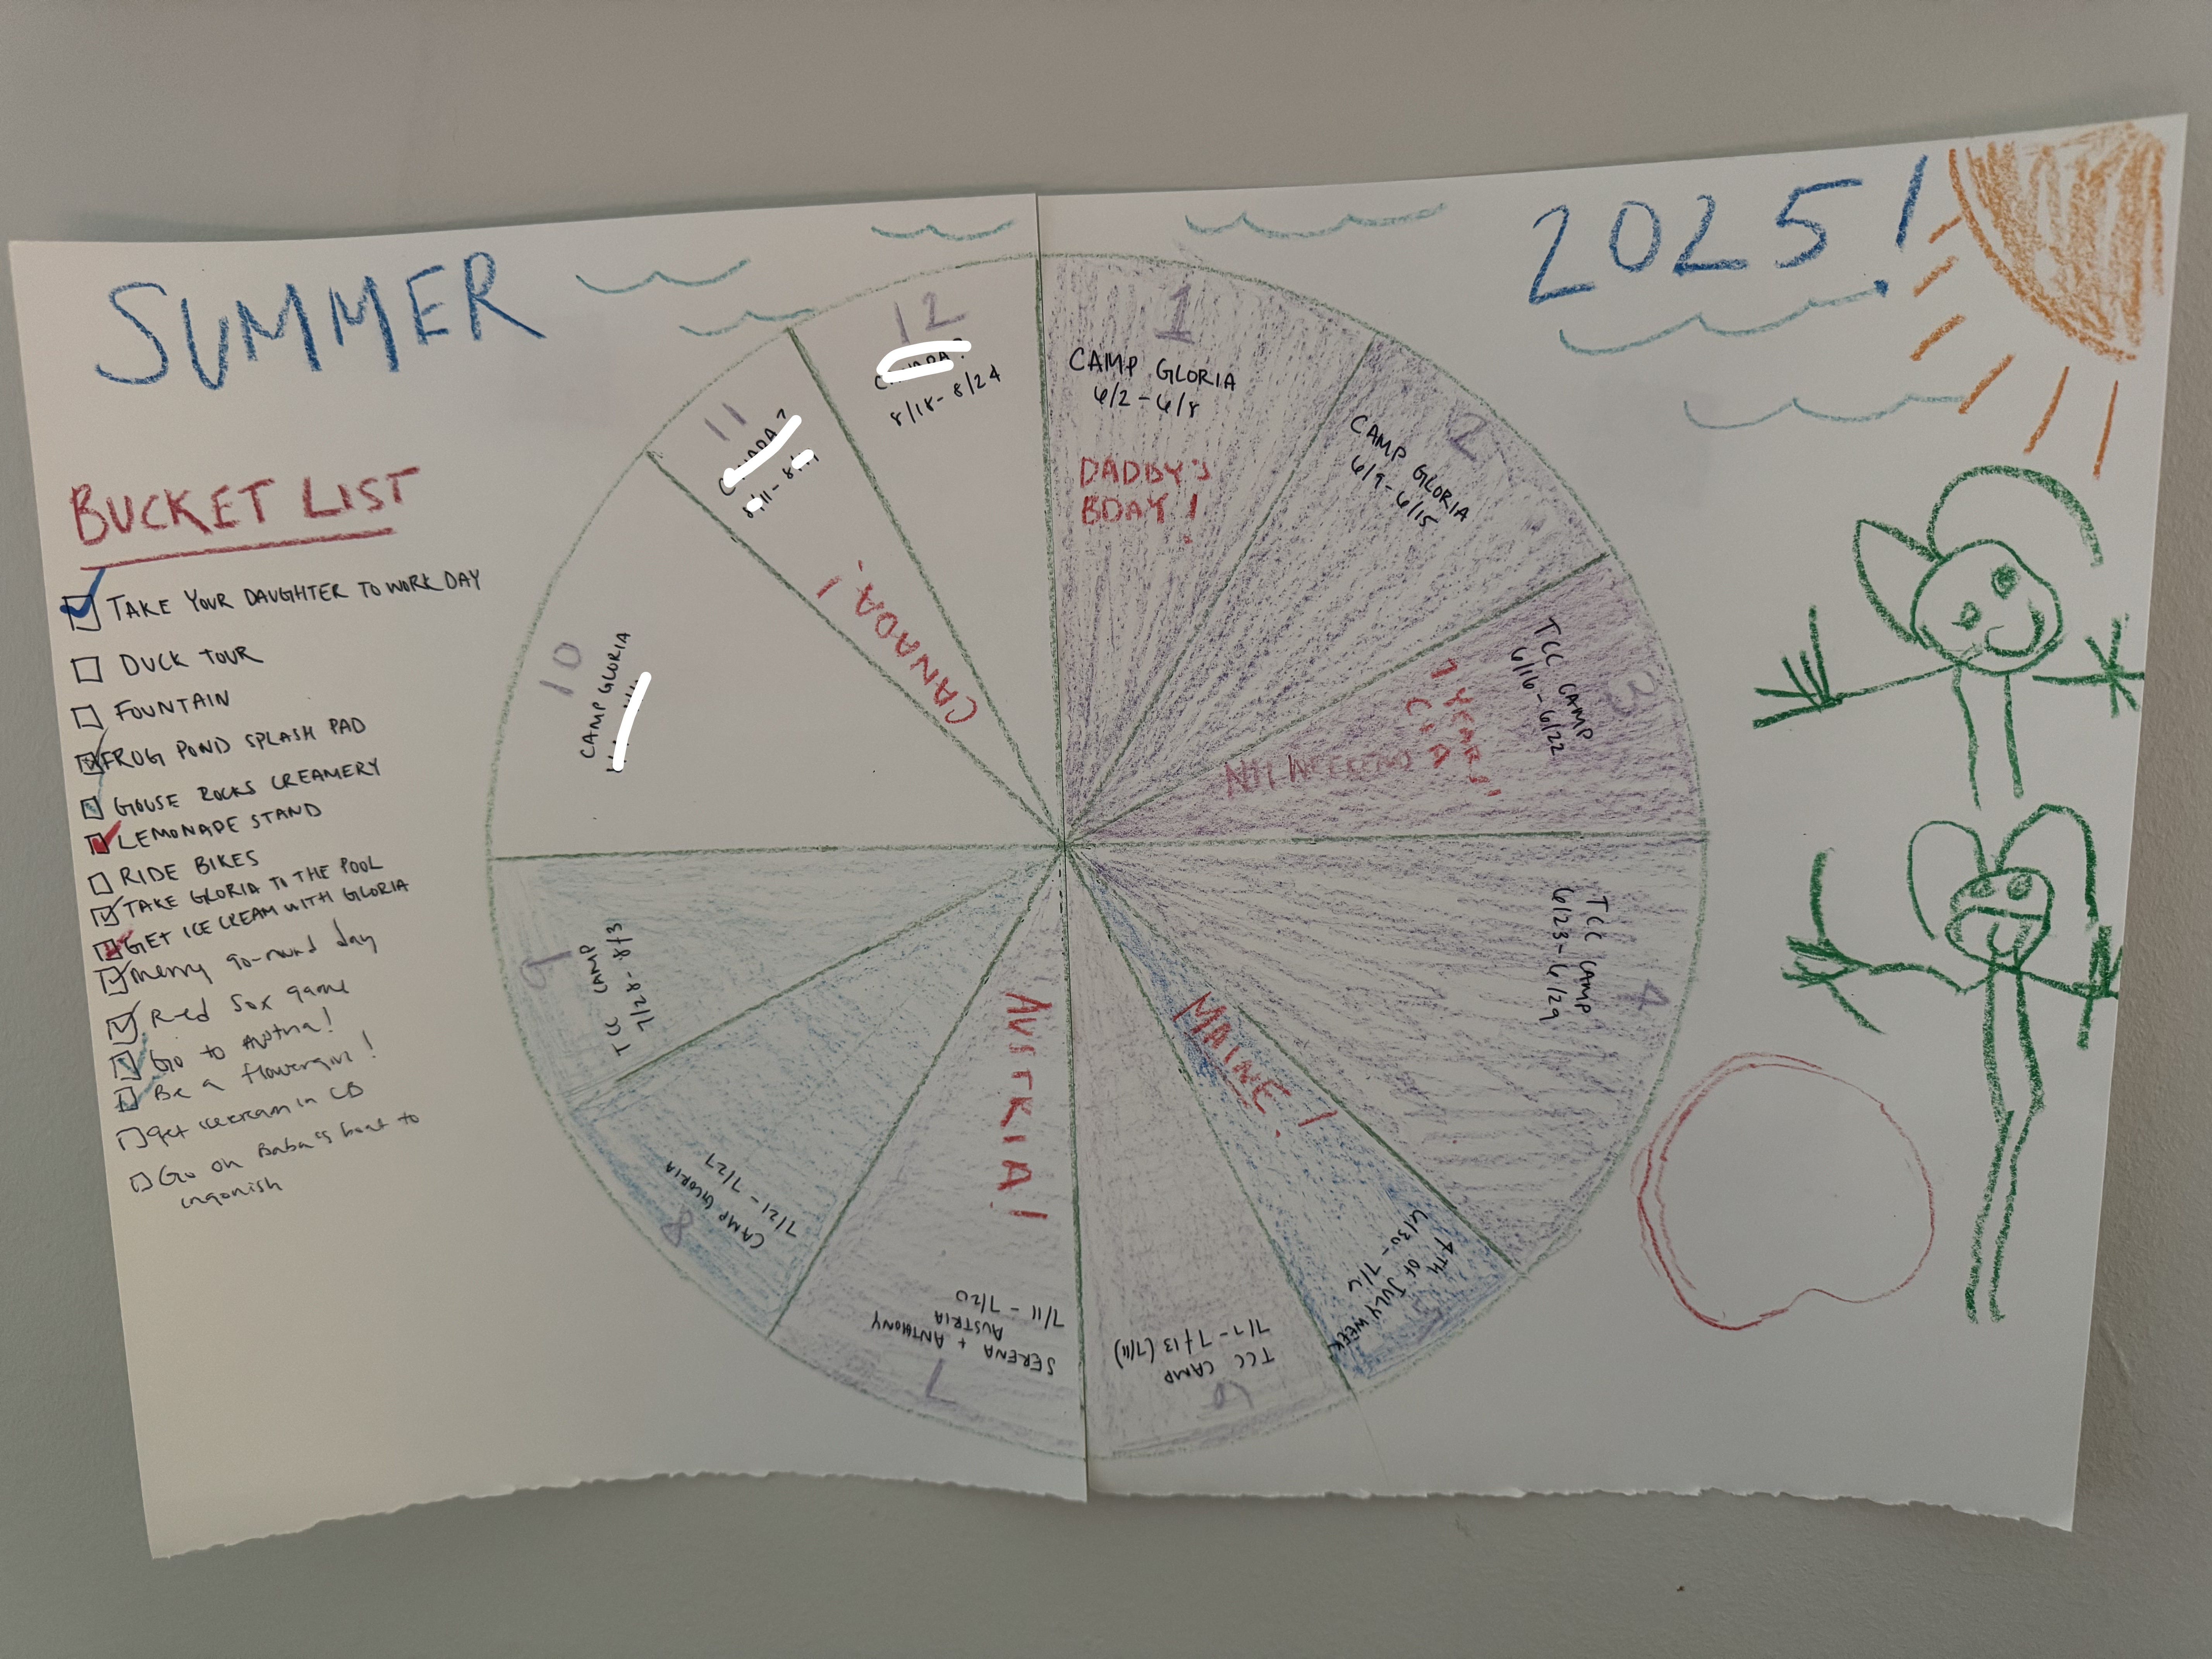 SUMMER
2025!
BUCKET LIST
TAKE YOUR DAUGHTER TO WORK DAY
DUCK TOUR
FOUNTAIN
FROG POND SPLASH PAD
GOUSE ROCKS CREAMERY
LEMONADE STAND
RIDE BIKES
TAKE GLORIA TO THE POOL
GET ICE CREAM WITH GLORIA
merry go-round day
Red Sox game
Go to Austria!
Be a flowergirl!
get icecream in CB
Go on Baba's boat to
ingonish
1
CAMP GLORIA
6/2-6/8
DADDY'S
BDAY!
2
CAMP GLORIA
6/9-6/15
3
TCC CAMP
6/16-6/22
1 YEAR!
NH WEEKEND
4
TCC CAMP
6/23-6/29
5
4TH OF JULY WEEK
6/30-7/6
MAINE!
6
TCC CAMP
7/7-7/13 (7/11)
7
SERENA + ANTHONY
AUSTRIA
7/11-7/20
AUSTRIA!
8
CAMP GLORIA
7/21-7/27
9
TCC CAMP
7/28-8/3
10
CAMP GLORIA
11
CANADA!
12
8/18-8/24